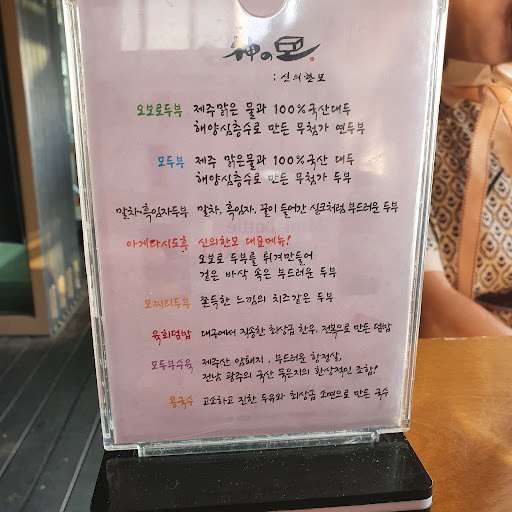 神の모
: 신의한모
오보로두부 제주맑은 물과 100%국산대두
해양심층수로 만든 무첨가 연두부
모두부 제주 맑은물과 100%국산 대두
해양심층수로 만든 무첨가 두부
말차·흑임자두부 말차, 흑임자, 꿀이 들어간 실크처럼 부드러운 두부
아게다시도후 신의한모 대표메뉴!
오보로 두부를 튀겨만들어
겉은 바삭 속은 부드러운 두부
모찌리두부 쫀득한 느낌의 치즈같은 두부
육회덮밥 대구에서 직송한 최상급 한우, 전복으로 만든 덮밥
모두부수육 제주산 암퇘지, 부드러운 항정살,
전남 광주의 국산 묵은지의 환상적인 조합!
콩국수 고소하고 진한 두유와 최상급 소면으로 만든 국수